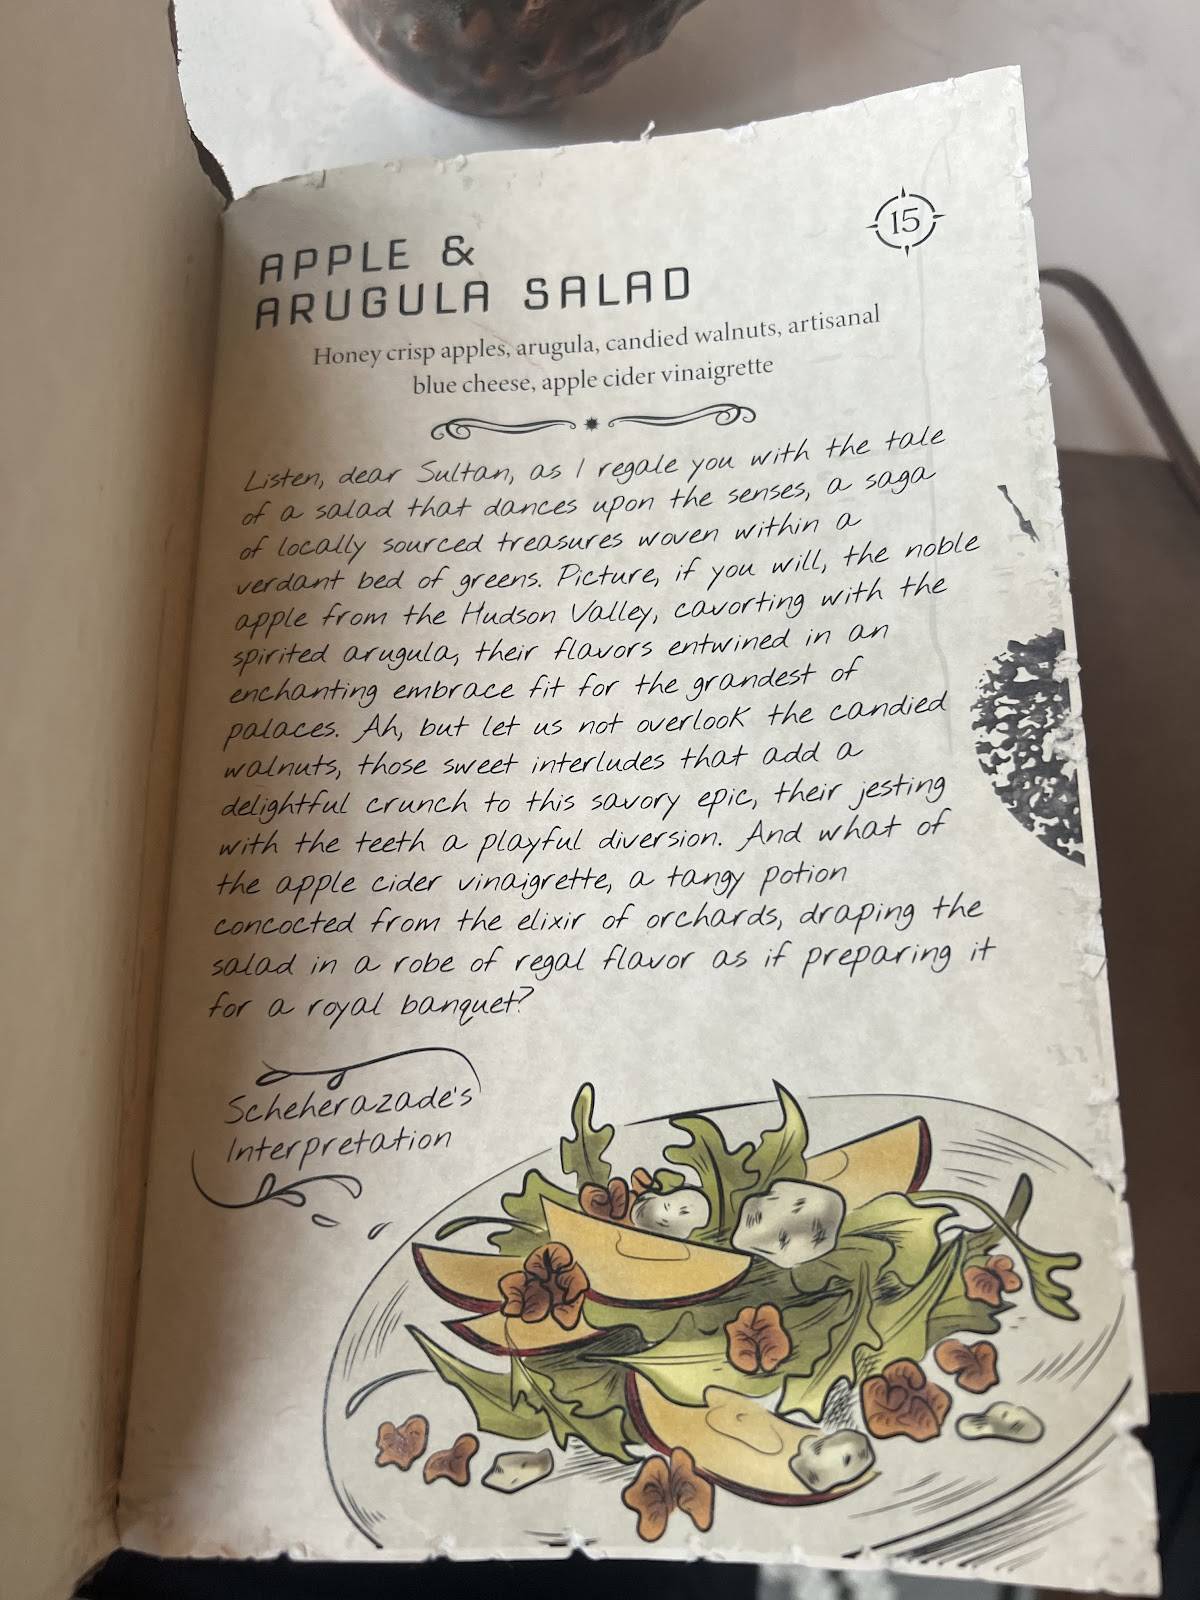 15
APPLE &
ARUGULA SALAD
Honey crisp apples, arugula, candied walnuts, artisanal
blue cheese, apple cider vinaigrette
Listen, dear Sultan, as I regale you with the tale
of a salad that dances upon the senses, a saga
of locally sourced treasures woven within a
verdant bed of greens. Picture, if you will, the noble
apple from the Hudson Valley, cavorting with the
spirited arugula, their flavors entwined in an
enchanting embrace fit for the grandest of
palaces. Ah, but let us not overlook the candied
walnuts, those sweet interludes that add a
delightful crunch to this savory epic, their jesting
with the teeth a playful diversion. And what of
the apple cider vinaigrette, a tangy potion
concocted from the elixir of orchards, draping the
salad in a robe of regal flavor as if preparing it
for a royal banquet?
Scheherazade's
Interpretation